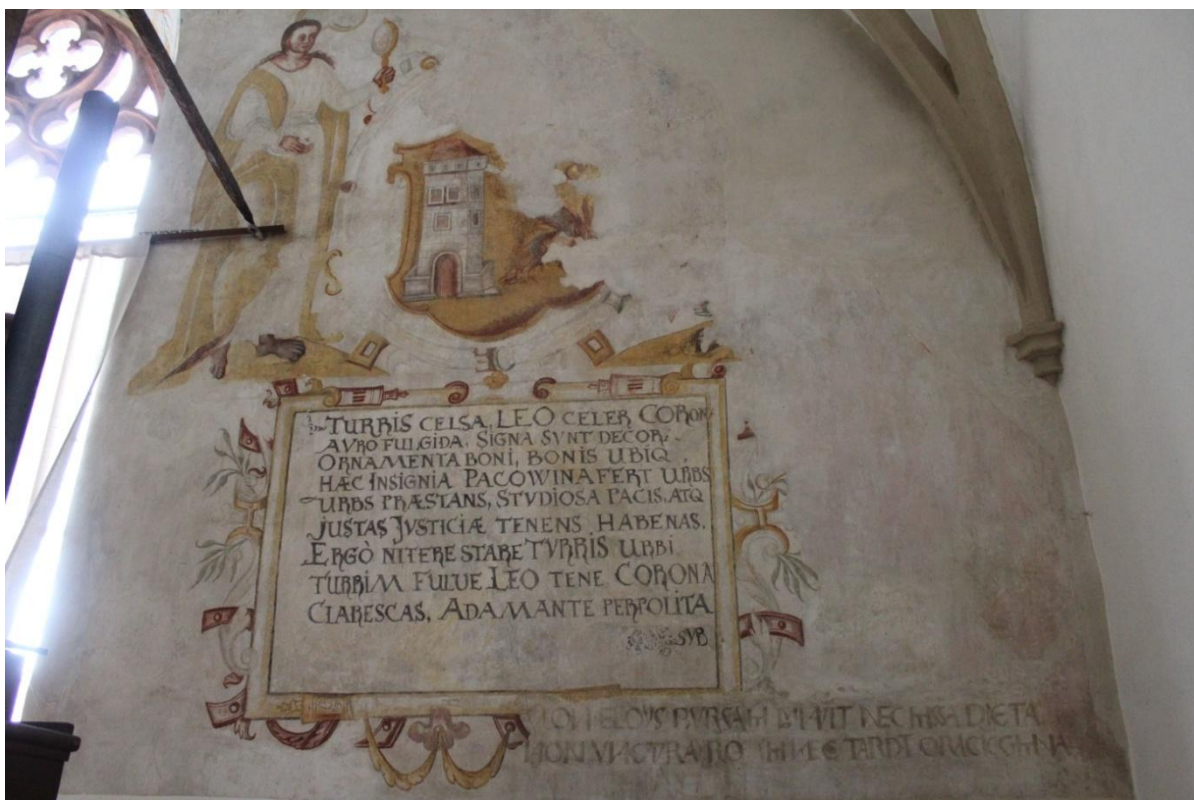 TURRIS CELSA, LEO CELER CORON
AVRO FULGIDA. SIGNA SVNT DECORI.
ORNAMENTA BONI, BONIS UBIQ,
HÆC INSIGNIA PACOWINA FERT URBS
URBS PRÆSTANS, STVDIOSA PACIS. ATQ
JUSTAS JVSTICIÆ TENENS HABENAS.
ERGÒ NITERE STARE TVRRIS URBI
TURRIM FULUE LEO TENE CORONA
CLARESCAS, ADAMANTE PERPOLITA
SVB
NEC DIETA
TARDI